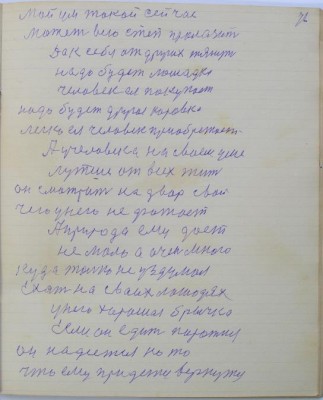 76
Мой ум такой сейчас
может всего етей приказать
Как себя от других тянит
надо будет лошадка
человек ея покупает
надо будет другая коровка
легко ея человек приобретает
А у человека на своем уме
лутше от всех жит
он смотрит на двор свой
чего у него не фатает
А природа ему дает
не мало а очен много
куда тикно не уздумал
Ехат на сваих лошадях
у него харошая брычка
Если он едит паротил
он надеется на то
что ему придется вернутц